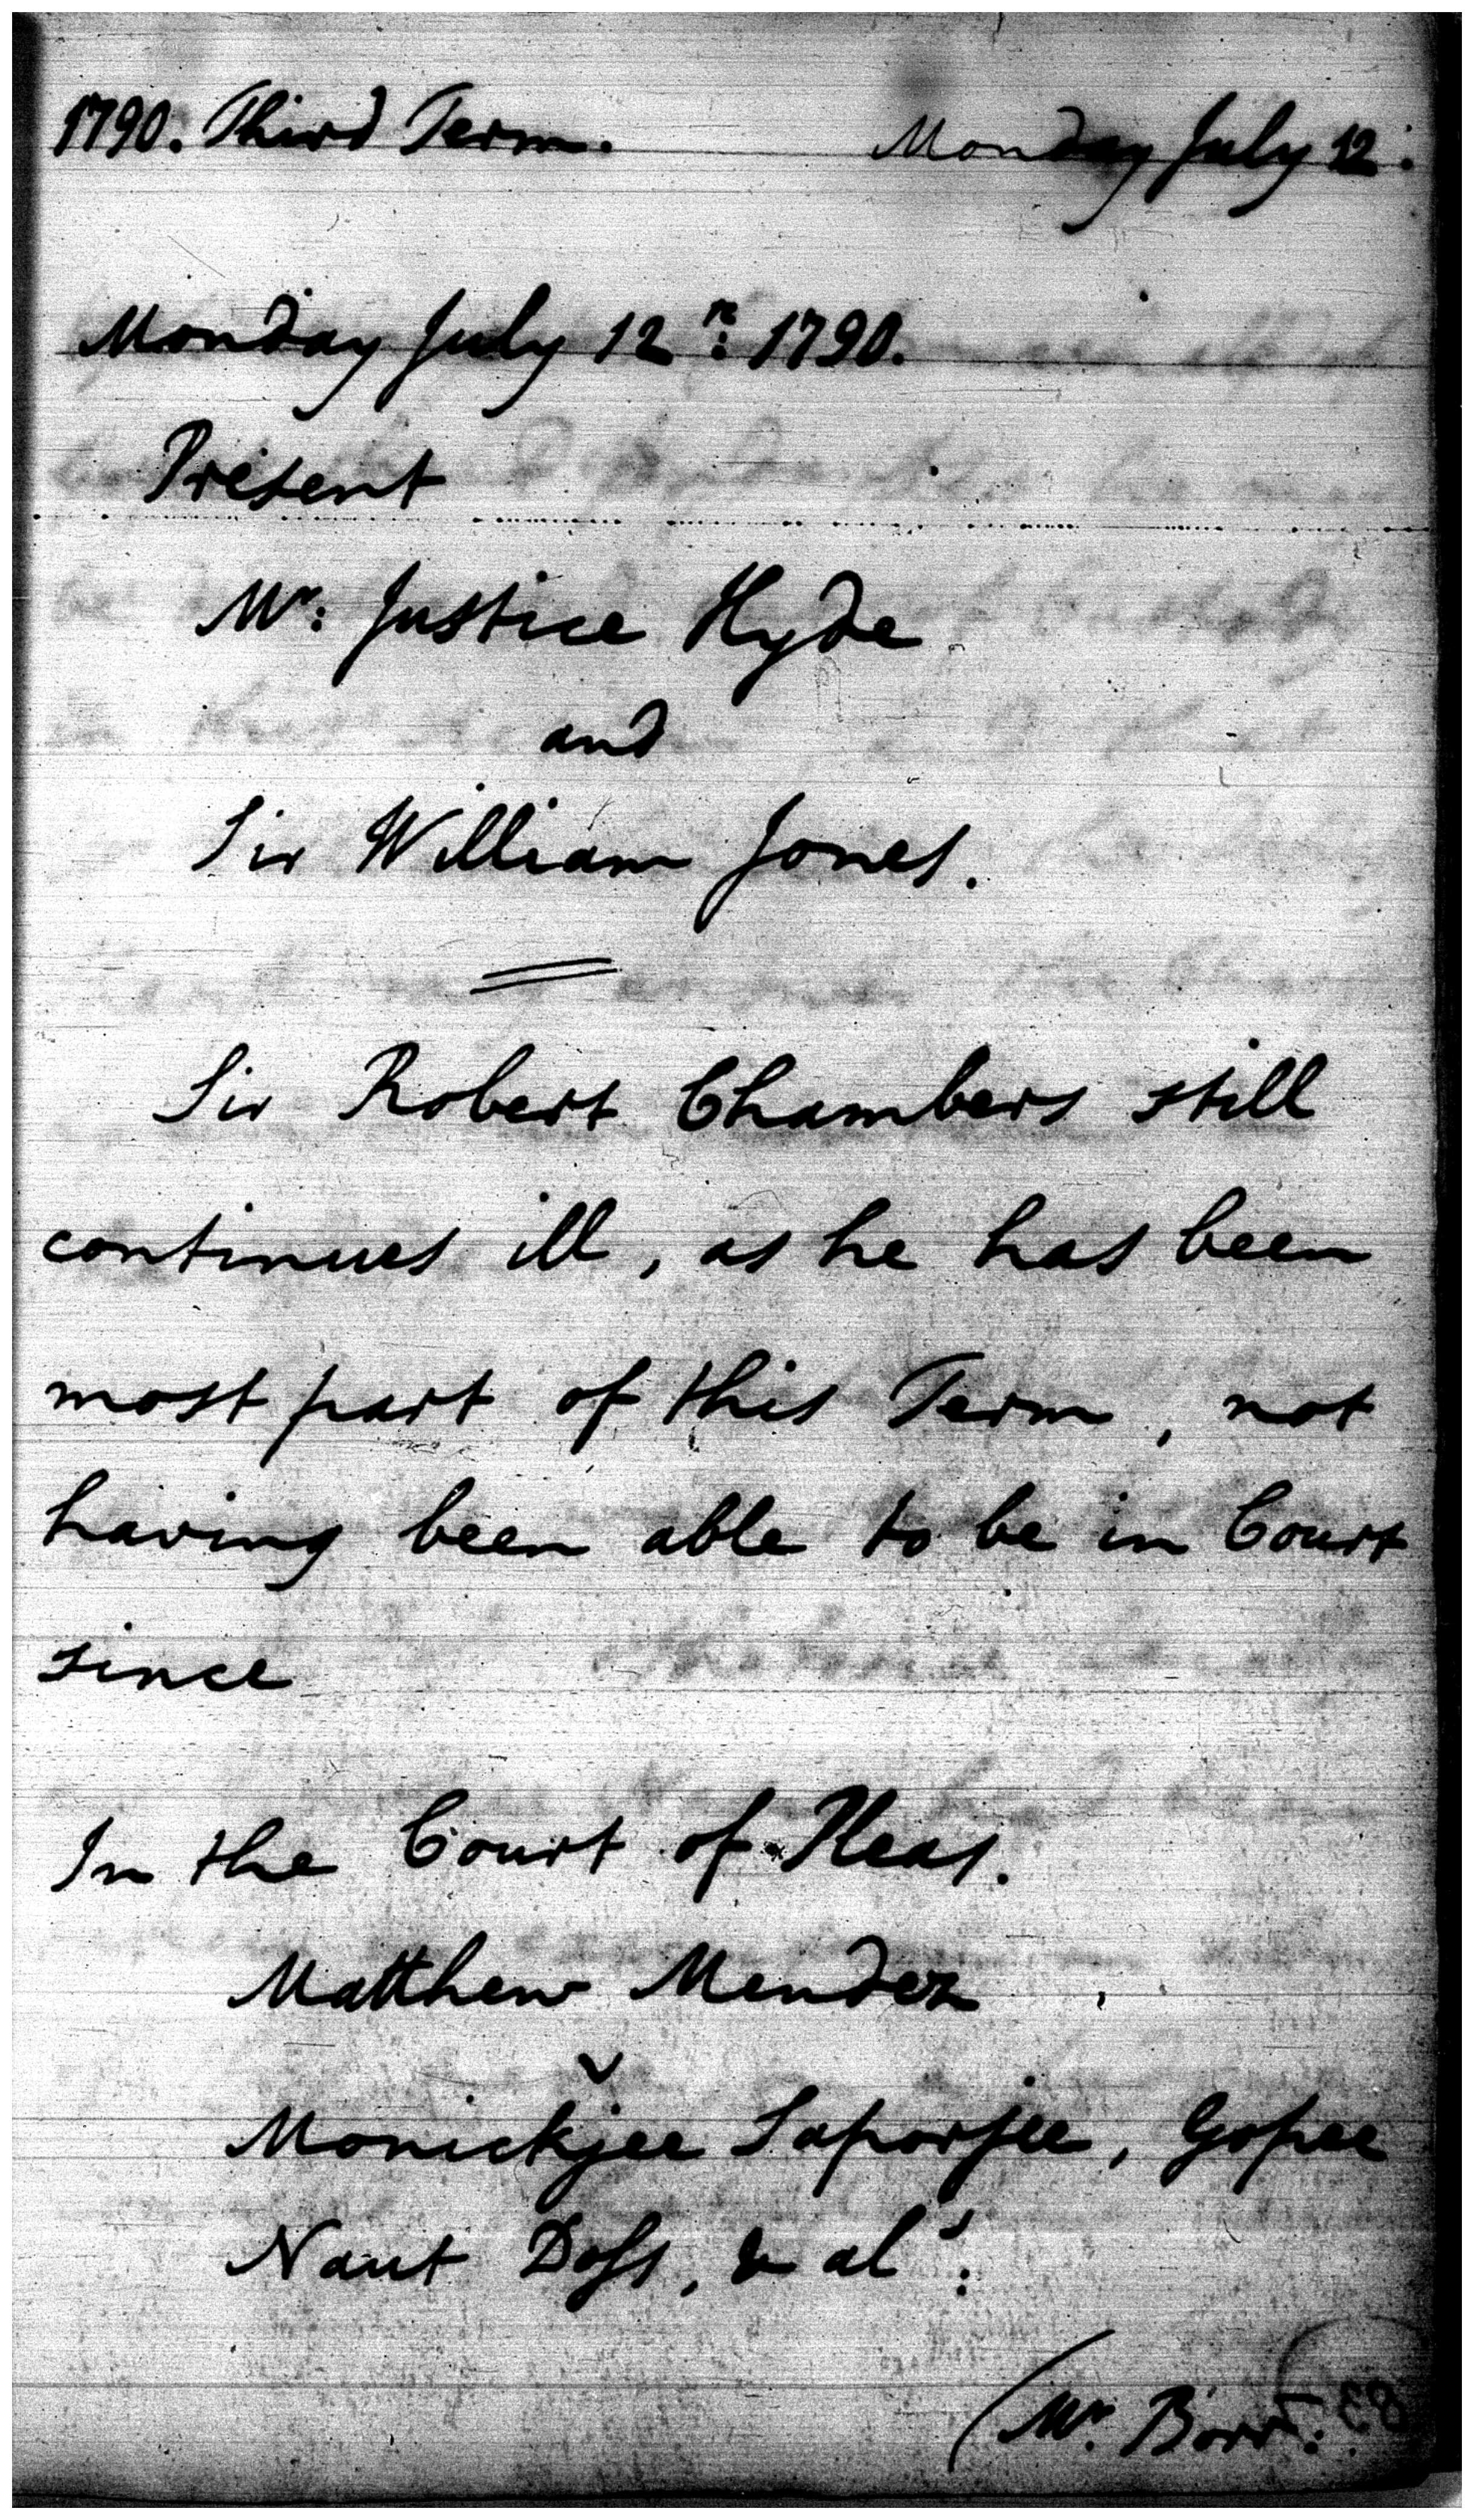 1790. Third Term. Monday July 12.
Monday July 12th: 1790.
Present
Mr: Justice Hyde
and
Sir William Jones.
Sir Robert Chambers still
continues ill, as he has been
most part of this Term, not
having been able to be in Court
since
In the Court of Pleas.
Matthew Mendez
v
Monickjee Saporjee, Gopee
Naut Doss, & als:
(Mr. Borr